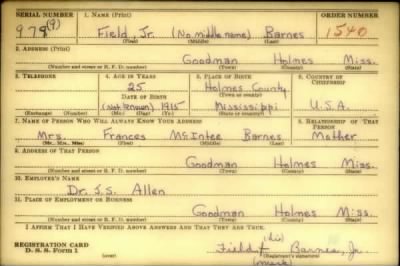 SERIAL NUMBER 1. NAME (Print) ORDER NUMBER
Field, Jr. (No middle name) Barnes 1540
(First) (Middle) (Last)
2. ADDRESS (Print)
Goodman Holmes Miss.
(Number and street or R. F. D. number) (Town) (County) (State)
3. TELEPHONE 4. AGE IN YEARS 5. PLACE OF BIRTH 6. COUNTRY OF CITIZENSHIP
25 Holmes County
DATE OF BIRTH (Town or county)
(Not known) 1915 Mississippi U.S.A.
(Exchange) (Number) (Mo.) (Day) (Yr.) (State or country)
7. NAME OF PERSON WHO WILL ALWAYS KNOW YOUR ADDRESS 8. RELATIONSHIP OF THAT PERSON
Mrs. Frances McIntee Barnes Mother
(Mr., Mrs., Miss) (First) (Middle) (Last)
9. ADDRESS OF THAT PERSON
Goodman Holmes Miss.
(Number and street or R. F. D. number) (Town) (County) (State)
10. EMPLOYER'S NAME
Dr. J.S. Allen
11. PLACE OF EMPLOYMENT OR BUSINESS
Goodman Holmes Miss.
(Number and street or R. F. D. number) (Town) (County) (State)
I AFFIRM THAT I HAVE VERIFIED ABOVE ANSWERS AND THAT THEY ARE TRUE.
REGISTRATION CARD (his)
D. S. S. Form 1 Field + Barnes, Jr.
(Registrant's signature)
(mark)